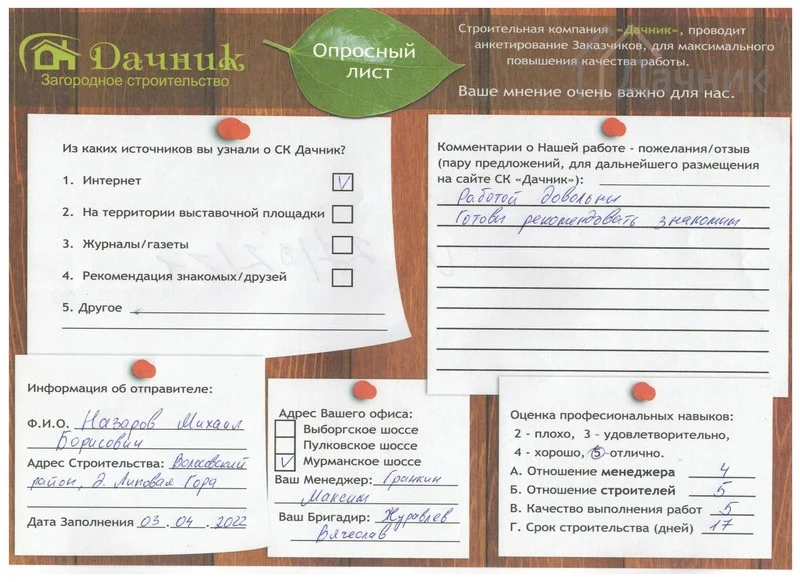 Дачник
Загородное строительство
Опросный
лист
Строительная компания «Дачник», проводит
анкетирование Заказчиков, для максимального
повышения качества работы.
Дачник
Ваше мнение очень важно для нас.
Из каких источников вы узнали о СК Дачник?
1. Интернет V
2. На территории выставочной площадки
3. Журналы/газеты
4. Рекомендация знакомых/друзей
5. Другое
Комментарии о Нашей работе - пожелания/отзыв
(пару предложений, для дальнейшего размещения
на сайте СК «Дачник»):
Работой довольны
Готовы рекомендовать знакомым
Информация об отправителе:
Ф.И.О. Назаров Михаил
Борисович
Адрес Строительства: Волосовский
район, д. Липовая Гора
Дата Заполнения 03.04.2022
Адрес Вашего офиса:
Выборгское шоссе
Пулковское шоссе
V Мурманское шоссе
Ваш Менеджер: Гранкин
Максим
Ваш Бригадир: Журавлев
Вячеслав
Оценка професиональных навыков:
2 - плохо, 3 - удовлетворительно,
4 - хорошо, 5 -отлично.
А. Отношение менеджера 4
Б. Отношение строителей 5
В. Качество выполнения работ 5
Г. Срок строительства (дней) 17